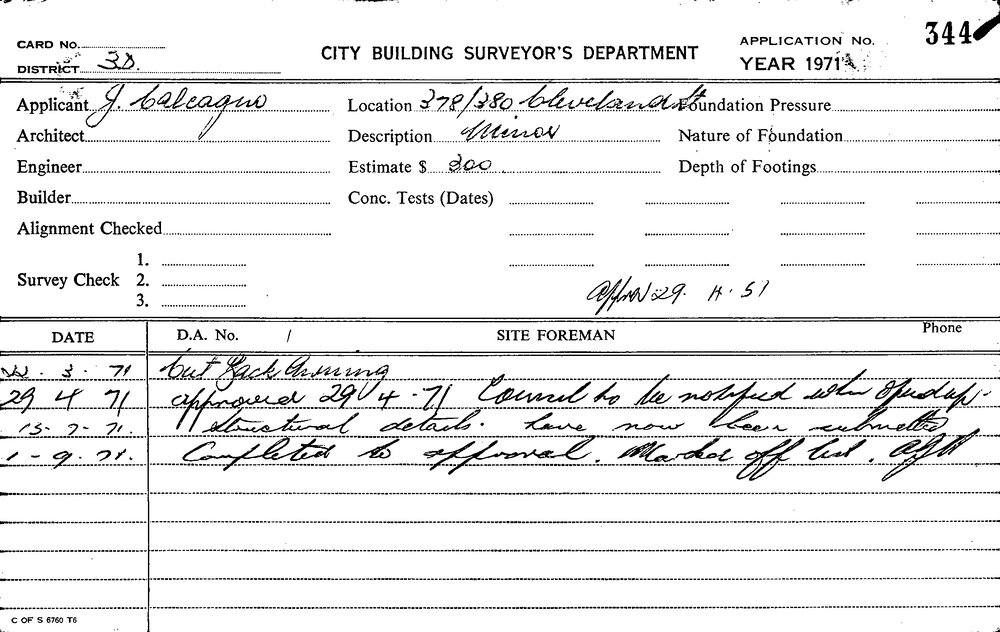 CARD No.
DISTRICT 3D.
CITY BUILDING SURVEYOR'S DEPARTMENT
APPLICATION No. 344
YEAR 1971
Applicant J. Calcagno Location 378/380 Cleveland St Foundation Pressure
Architect Description Minor Nature of Foundation
Engineer Estimate $ 300 Depth of Footings
Builder Conc. Tests (Dates)
Alignment Checked
1.
Survey Check 2.
3.
29.
DATE D.A. No. / SITE FOREMAN Phone
3. 71 Cut Back Awning
29 4 71 approved 29 4-71 Council to be notified when
15-7-71. structural details. have now been submitted
1-9.71. Completed to approval. Marked off list.
C OF S 6760 T6